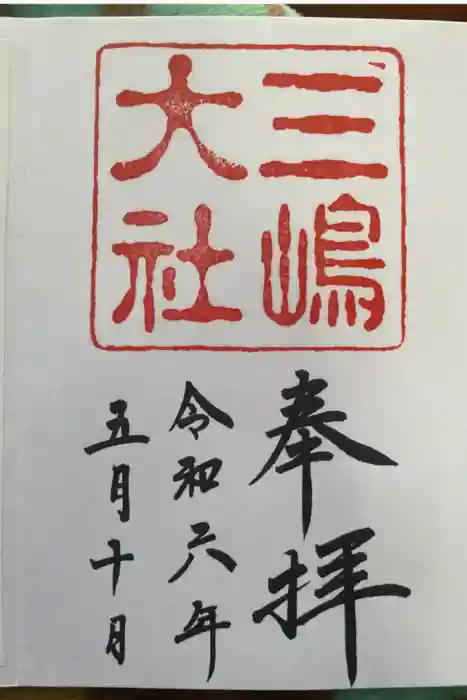 三嶋
大社
奉拝
令和六年
五月十日